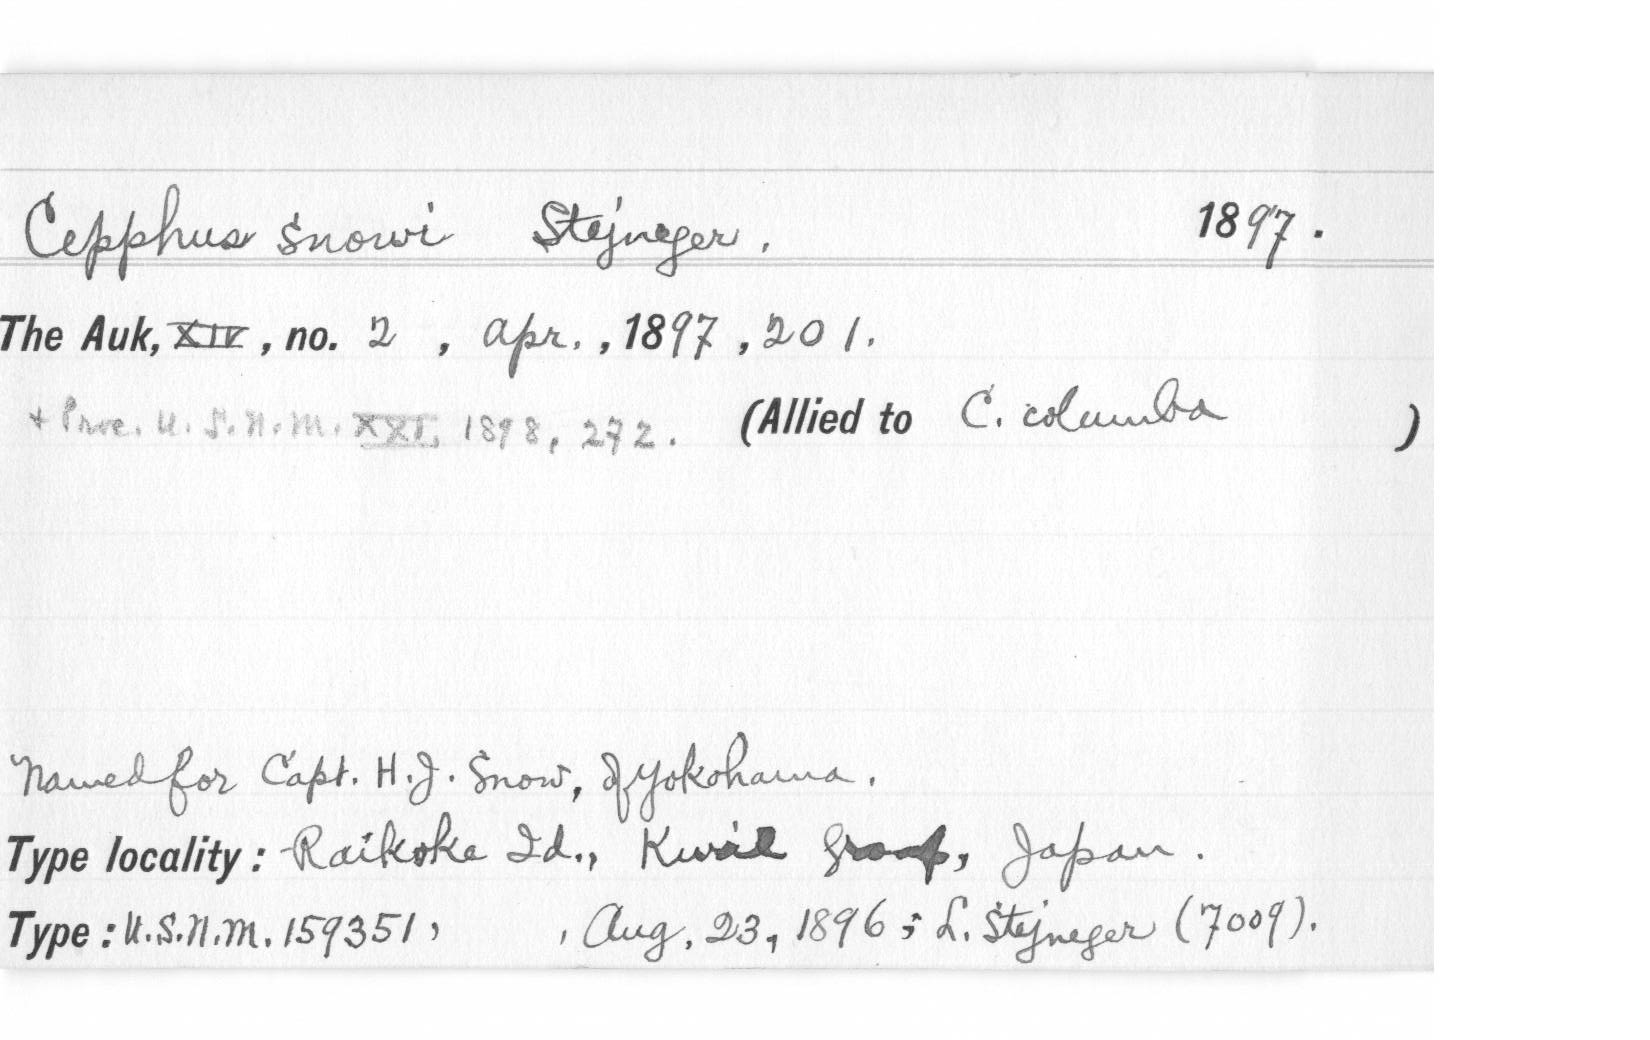 Cepphus snowi Stejneger, 1897.
The Auk, XIV, no. 2, Apr., 1897, 201.
+ Proc. U.S.N.M. XXI, 1898, 272. (Allied to C. columba)
Named for Capt. H.J. Snow, of Yokohama.
Type locality: Raikoke Id., Kuril Group, Japan.
Type: U.S.N.M. 159351, , Aug. 23, 1896; L. Stejneger (7009).